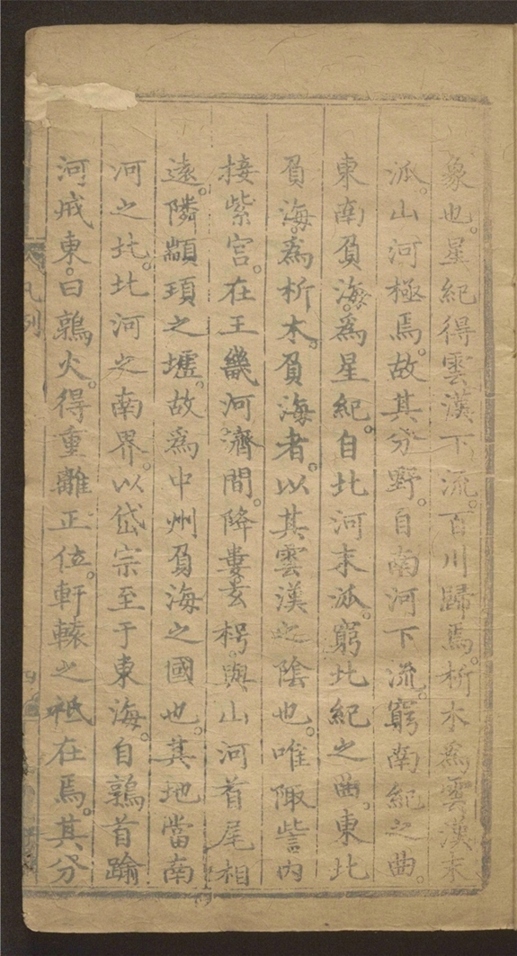 象也。星紀得雲漢下流。百川歸焉。析木爲雲漢末
派。山河極焉。故其分野。自南河下流。窮南紀之曲。
東南負海。爲星紀。自北河末派。窮北紀之曲。東北
負海。爲析木。負海者。以其雲漢之陰也。唯陬訾內
接紫宮。在王畿河濟間。降婁玄枵。與山河首尾相
遠。隣顓頊之墟。故爲中州負海之國也。其地當南
河之北。北河之南界。以岱宗至于東海。自鶉首踰
河戒東。曰鶉火。得重離正位。軒轅之祇在焉。其分
凡例